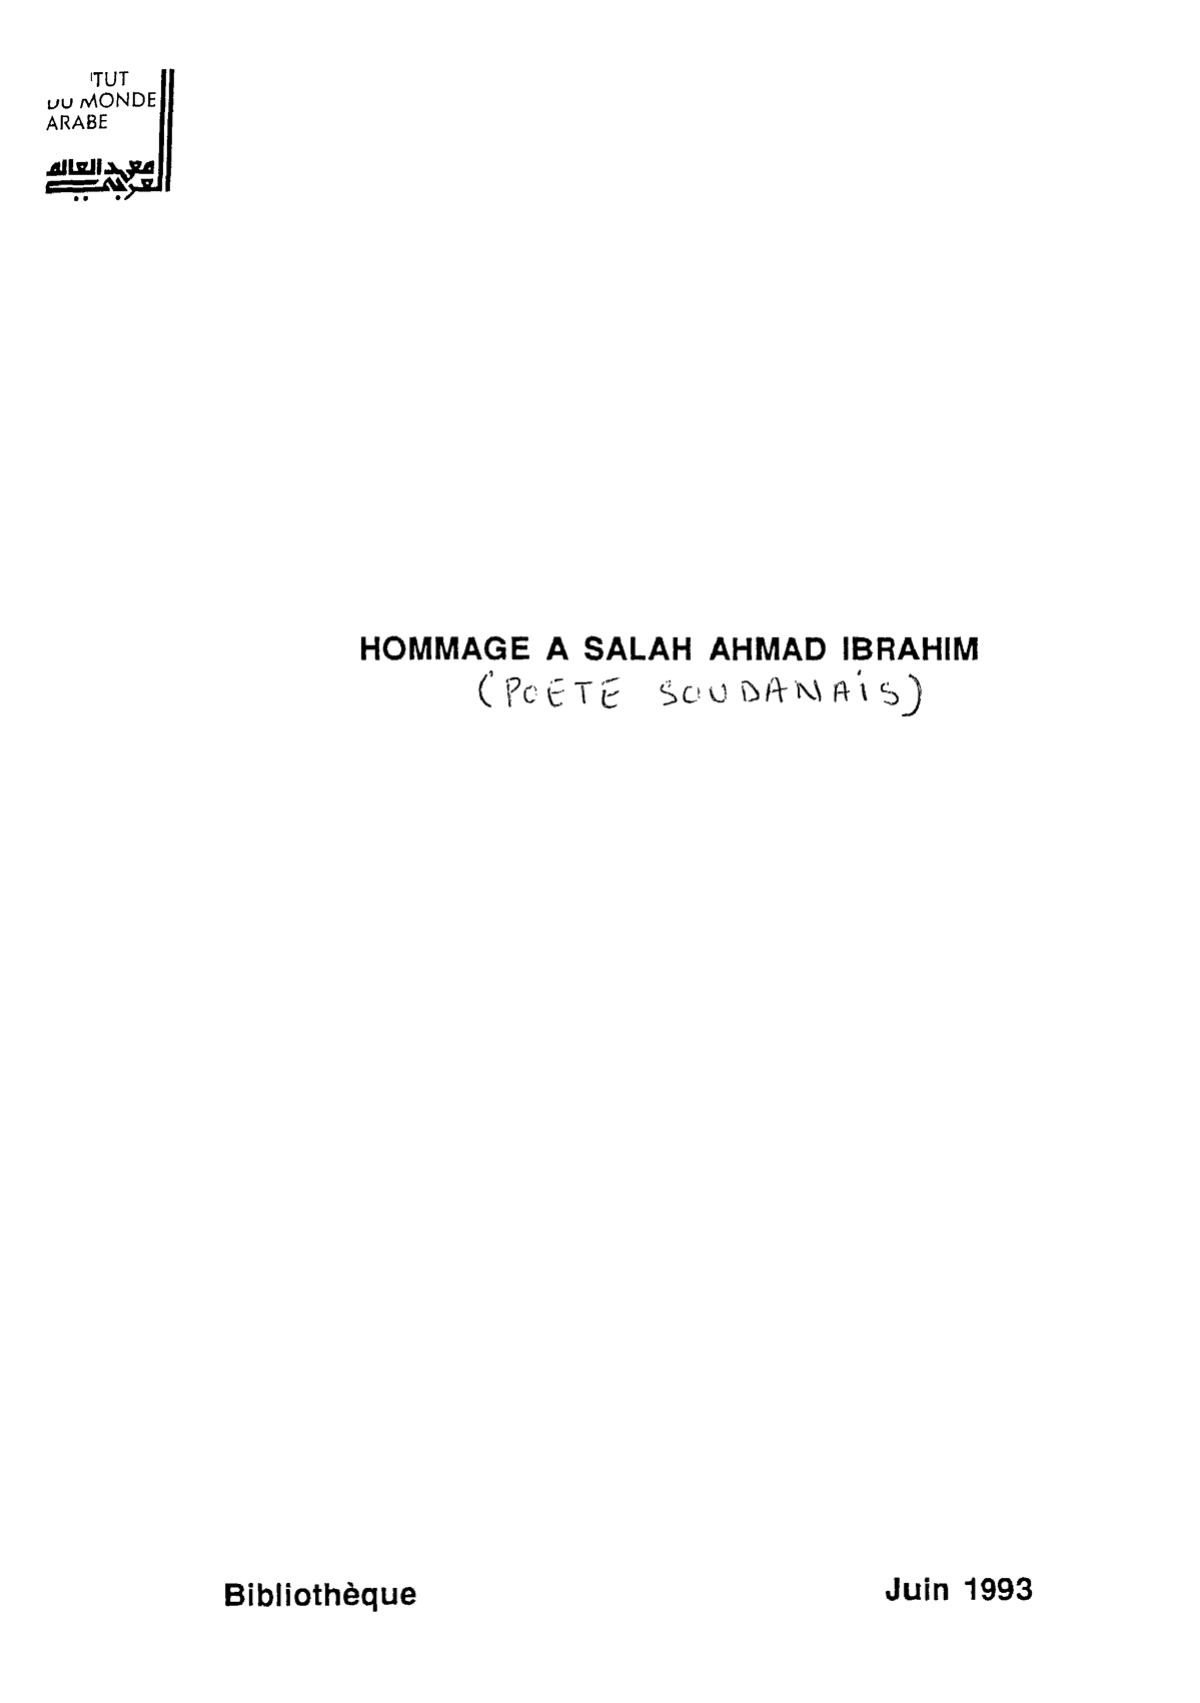 TUT
DU MONDE
ARABE
معهد العالم
العربي
HOMMAGE A SALAH AHMAD IBRAHIM
(POETE SOUDANAIS)
Bibliothèque
Juin 1993